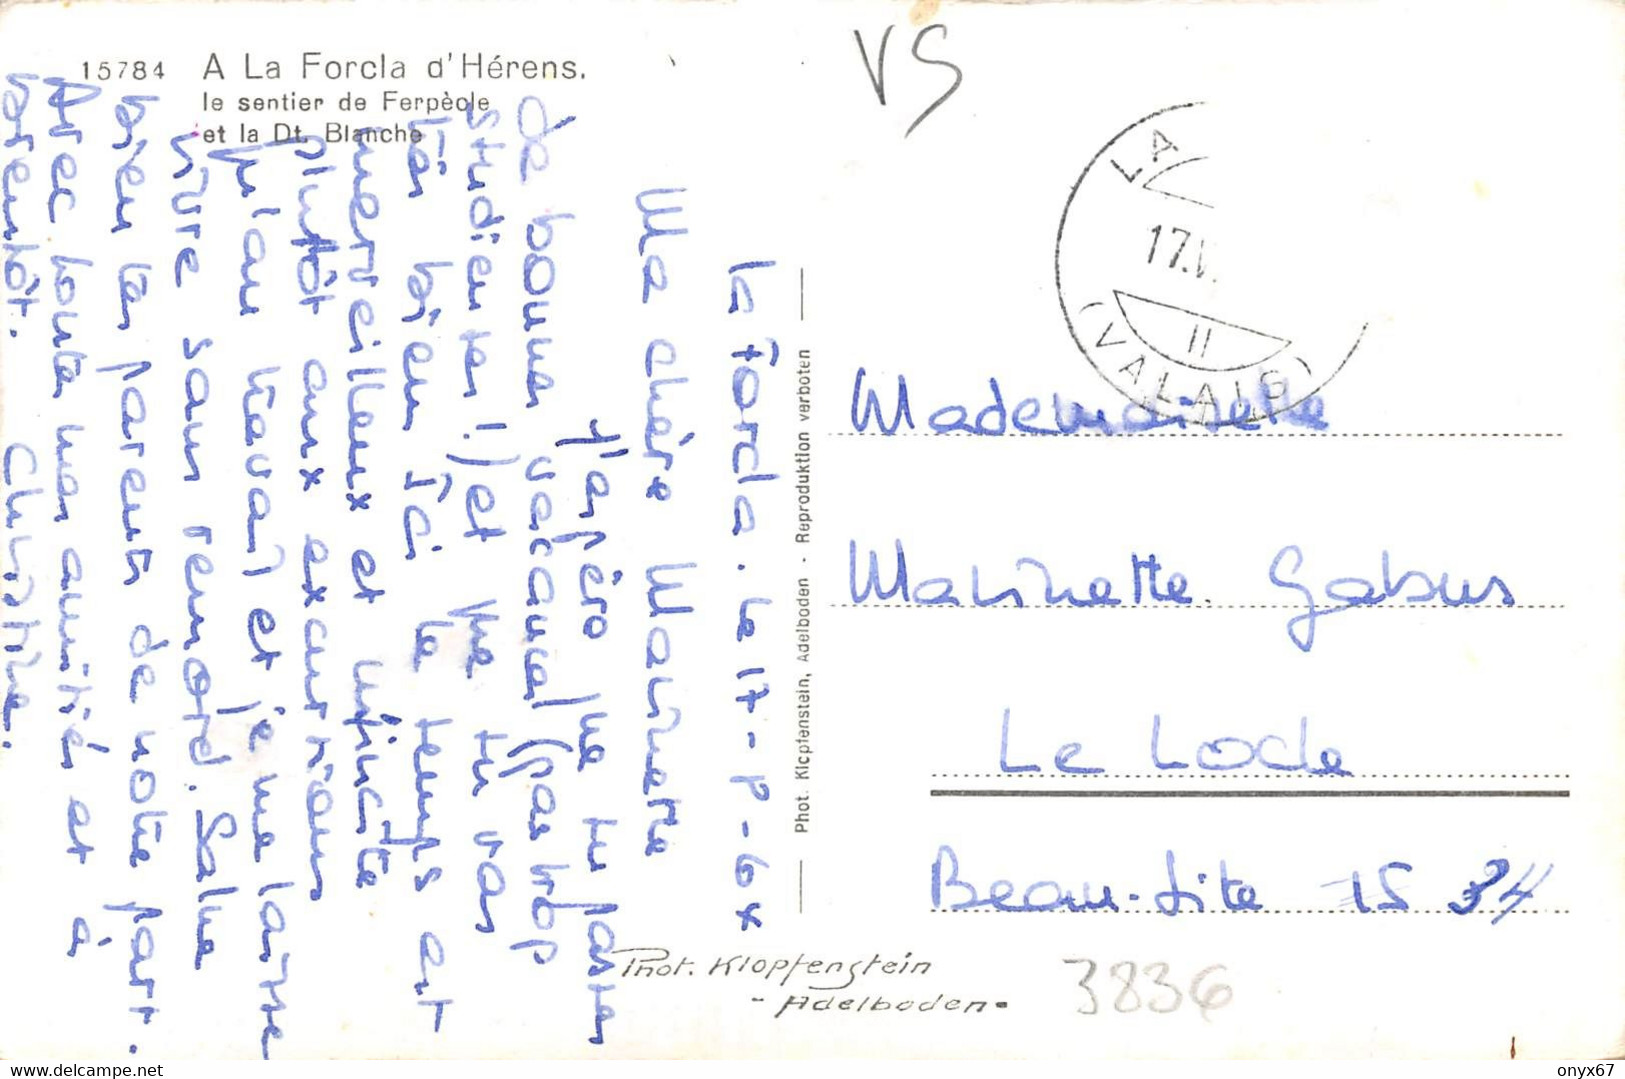 15784 A La Forcla d'Hérens.
le sentier de Ferpècle
et la Dt. Blanche
VS
LA
17.V
II
(VALAIS)
La Forcla. le 17-
Ma chère Marinette
J'espère que tu passes
de bonnes vacances (pas trop
studieuses!) et que tu vas
très bien. Ici le temps est
merveilleux et m'incite
plutôt aux excursions
qu'au travail et je me laisse
vivre sans remord. Salue
bien tes parents de notre part.
Avec toutes mes amitiés et à
bientôt. Christine.
Phot. Klopfenstein, Adelboden - Reproduktion verboten
Mademoiselle
Marinette Gabus
Le Locle
Beau-Site 15 34
Phot. Klopfenstein
- Adelboden -
3836
delcampe.net
onyx67